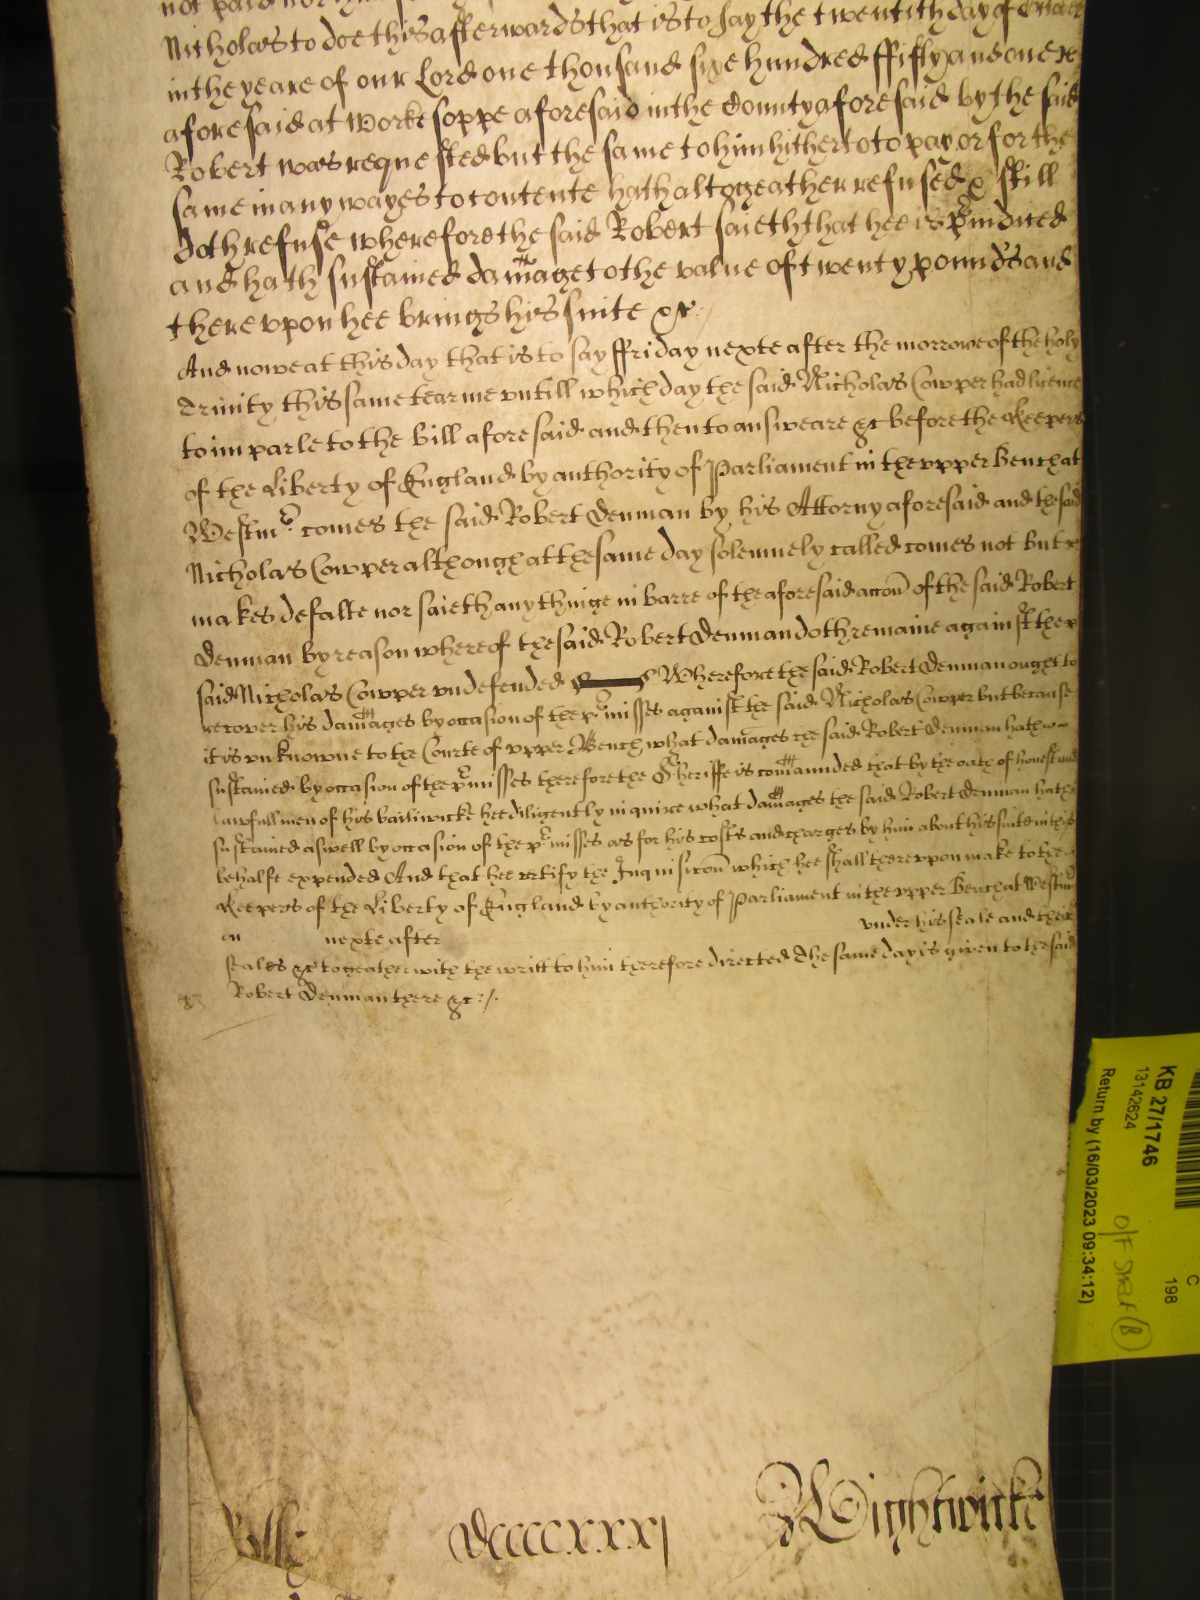 Nicholas to doe this afterwards that is to say the twentith day of
in the yeare of our Lord one thousand sixe hundred ffifty and one
aforesaid at Workesoppe aforesaid in the County aforesaid by the said
Robert was requested but the same to him hitherto to pay or for the
same in any wayes to contente hath altogeather refused & still
doth refuse wherefore the said Robert saieth that hee is p'iudiced
and hath sustained damage to the value of twenty pounds and
there vpon hee brings his suite &c
And nowe at this day that is to say ffriday nexte after the morrowe of the holy
Trinity this same tearme vntill which day the said Nicholas Cowper had licence
to imparle to the bill aforesaid and then to answeare &c before the Keepers
of the Liberty of England by authority of Parliament in the vpper Bench at
Westmr comes the said Robert Denman by his Attorny aforesaid and the said
Nicholas Cowper although at the same day solemnely called comes not but
makes defalte nor saieth any thinge in barre of the aforesaid accon of the said Robert
Denman by reason whereof the said Robert Denman doth remaine against the
said Nicholas Cowper vndefended Wherefore the said Robert Denman ought to
recover his damages by occasion of the p'misses against the said Nicholas Cowper but because
it is vnknowne to the Courte of vpper Bench what damages the said Robert Denman hath
sustained by occasion of the p'misses therefore the Sheriffe is comaunded that by the oath of honest and
lawfull men of his bailiwicke hee diligently inquire what damages the said Robert Denman hath
sustained aswell by occasion of the p'misses as for his costs and charges by him about his suite in this
behalfe expended And that hee certify the Inquisicon which hee shall therevpon make to the
Keepers of the Liberty of England by authority of Parliament in the vpper Bench at Westmr
on nexte after vnder his seale and their
seales &c togeather with the writt to him therefore directed The same day is given to the said
Robert Denman there &c
KB 27/1746
13142624
Return by (16/03/2023 09:34:12)
C
198
Dccccxxxj
Wightwicke